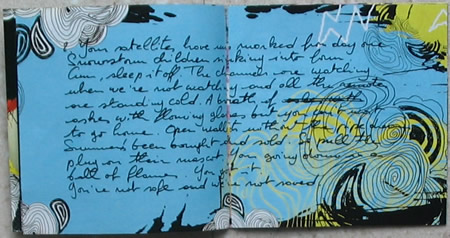 Your satellites have me marked from day one
Snowstorm children sinking into
sleep it off. The cameras are watching
when we're not watching and all the remote
are standing cold. A breath of
ashes with flowing but you
to go home. Open
Summers been bought and sold so pull the
plug on their mascot. You going down in a
ball of flames. You
You're not safe and we're not saved